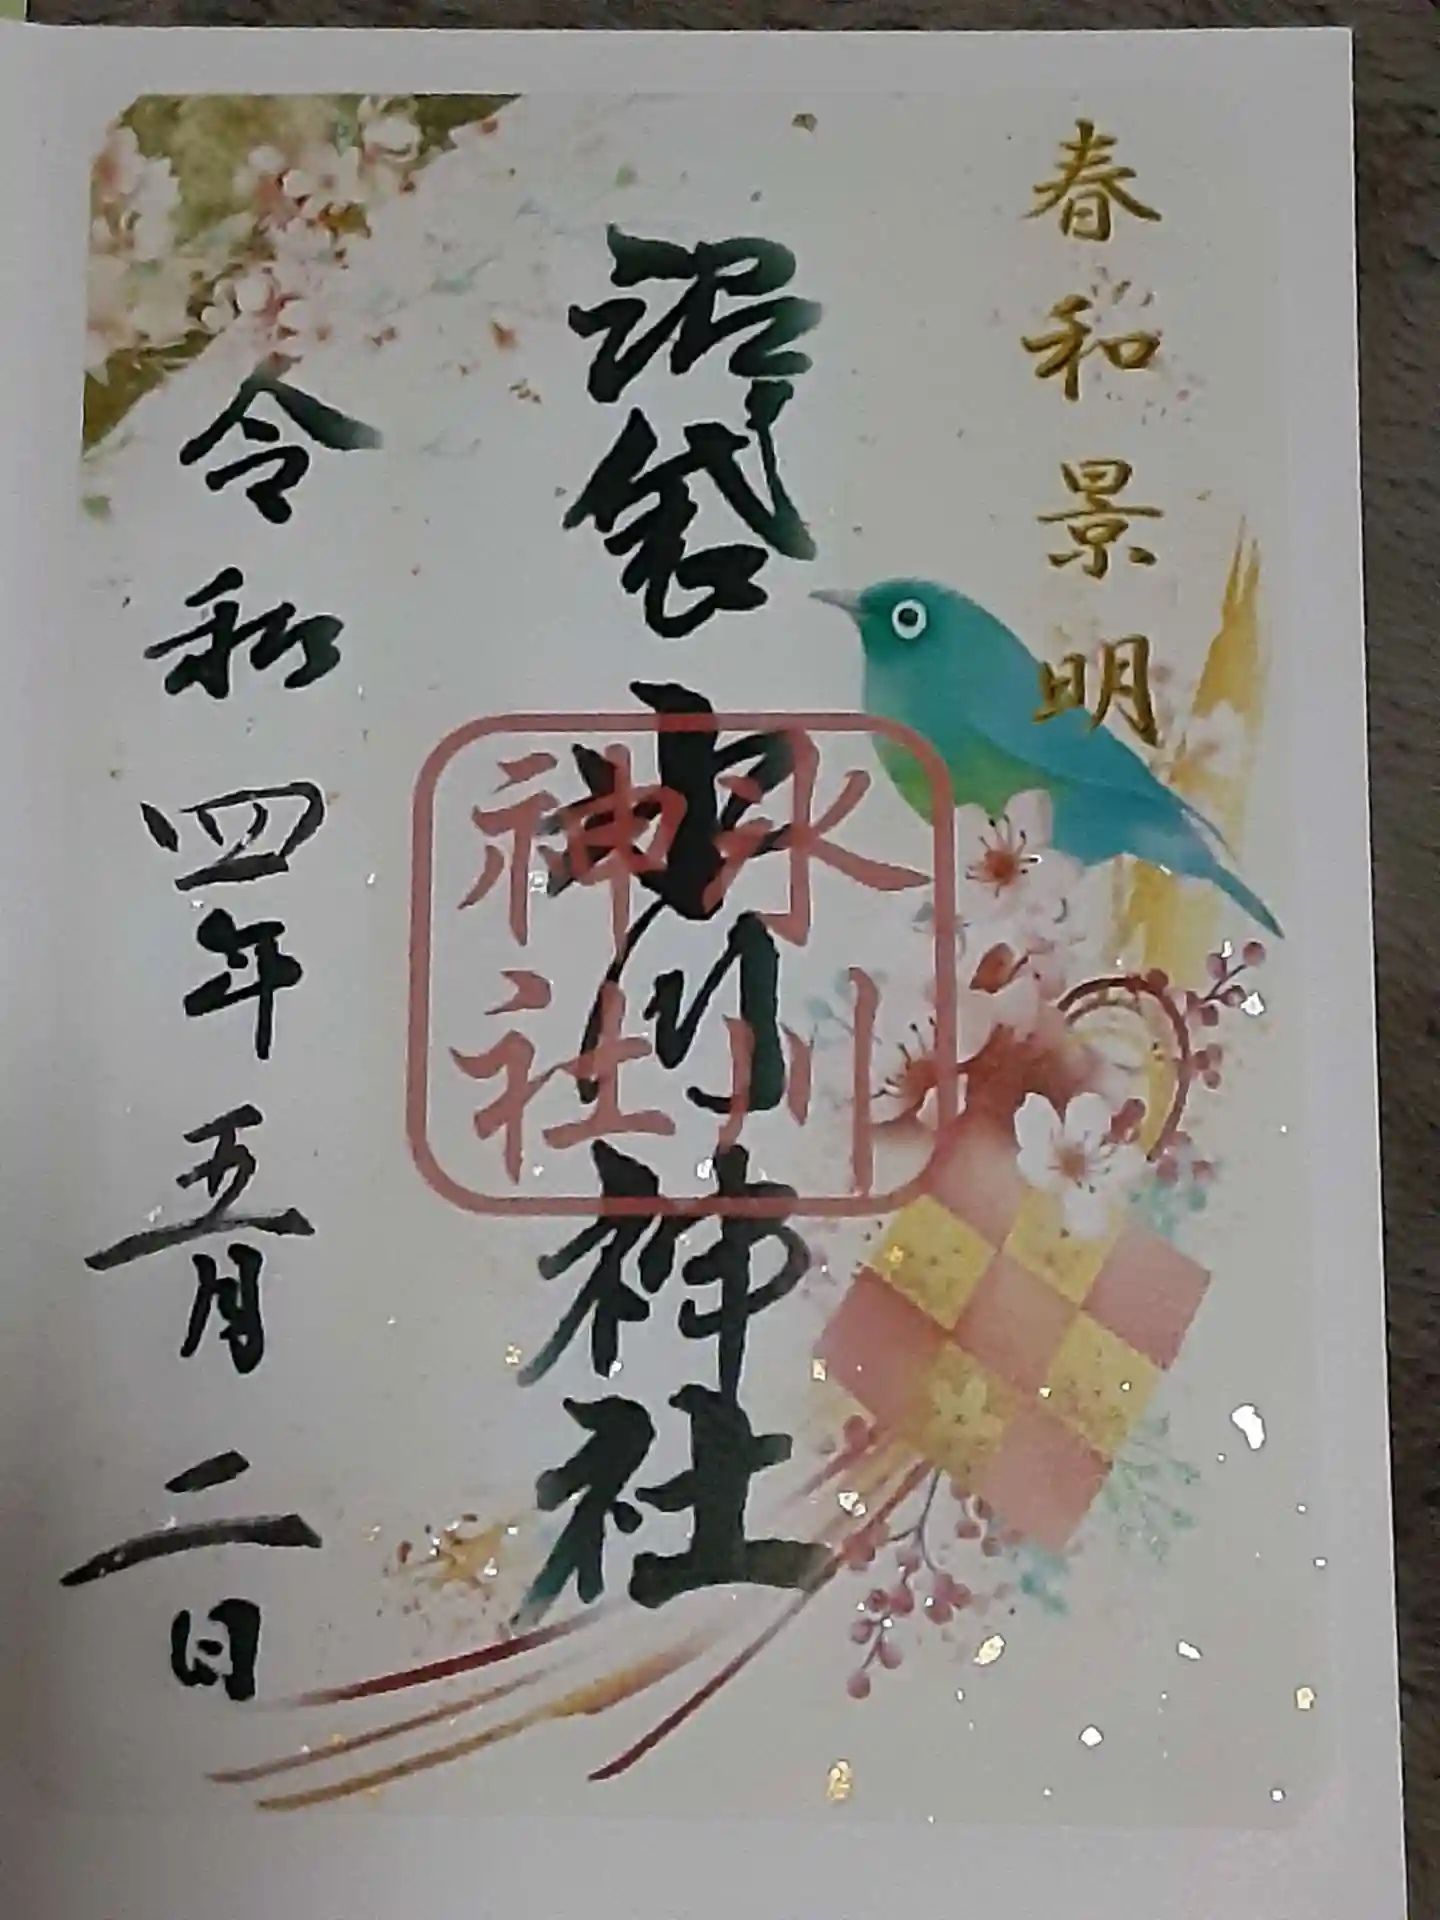 春和景明
沼袋氷川神社
氷川神社
令和四年五月二日